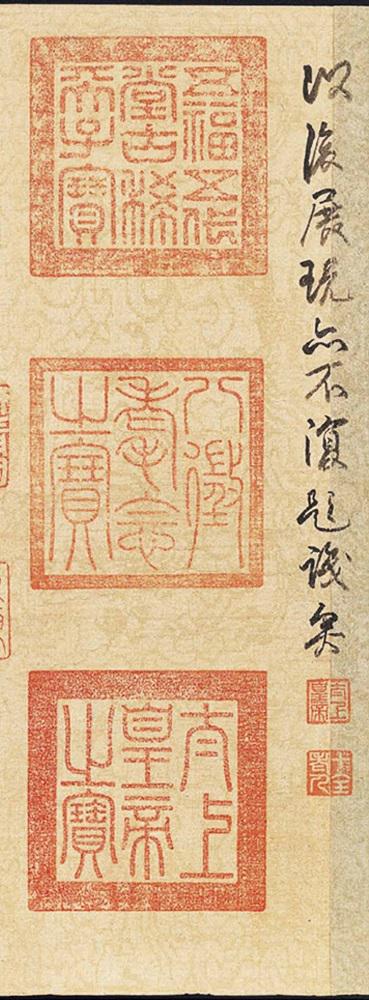 以後展玩亦不復題識矣
太上
皇帝
十全
老人
五福五代
堂古稀
天子寶
八徵
耄念
之寶
太上
皇帝
之寶